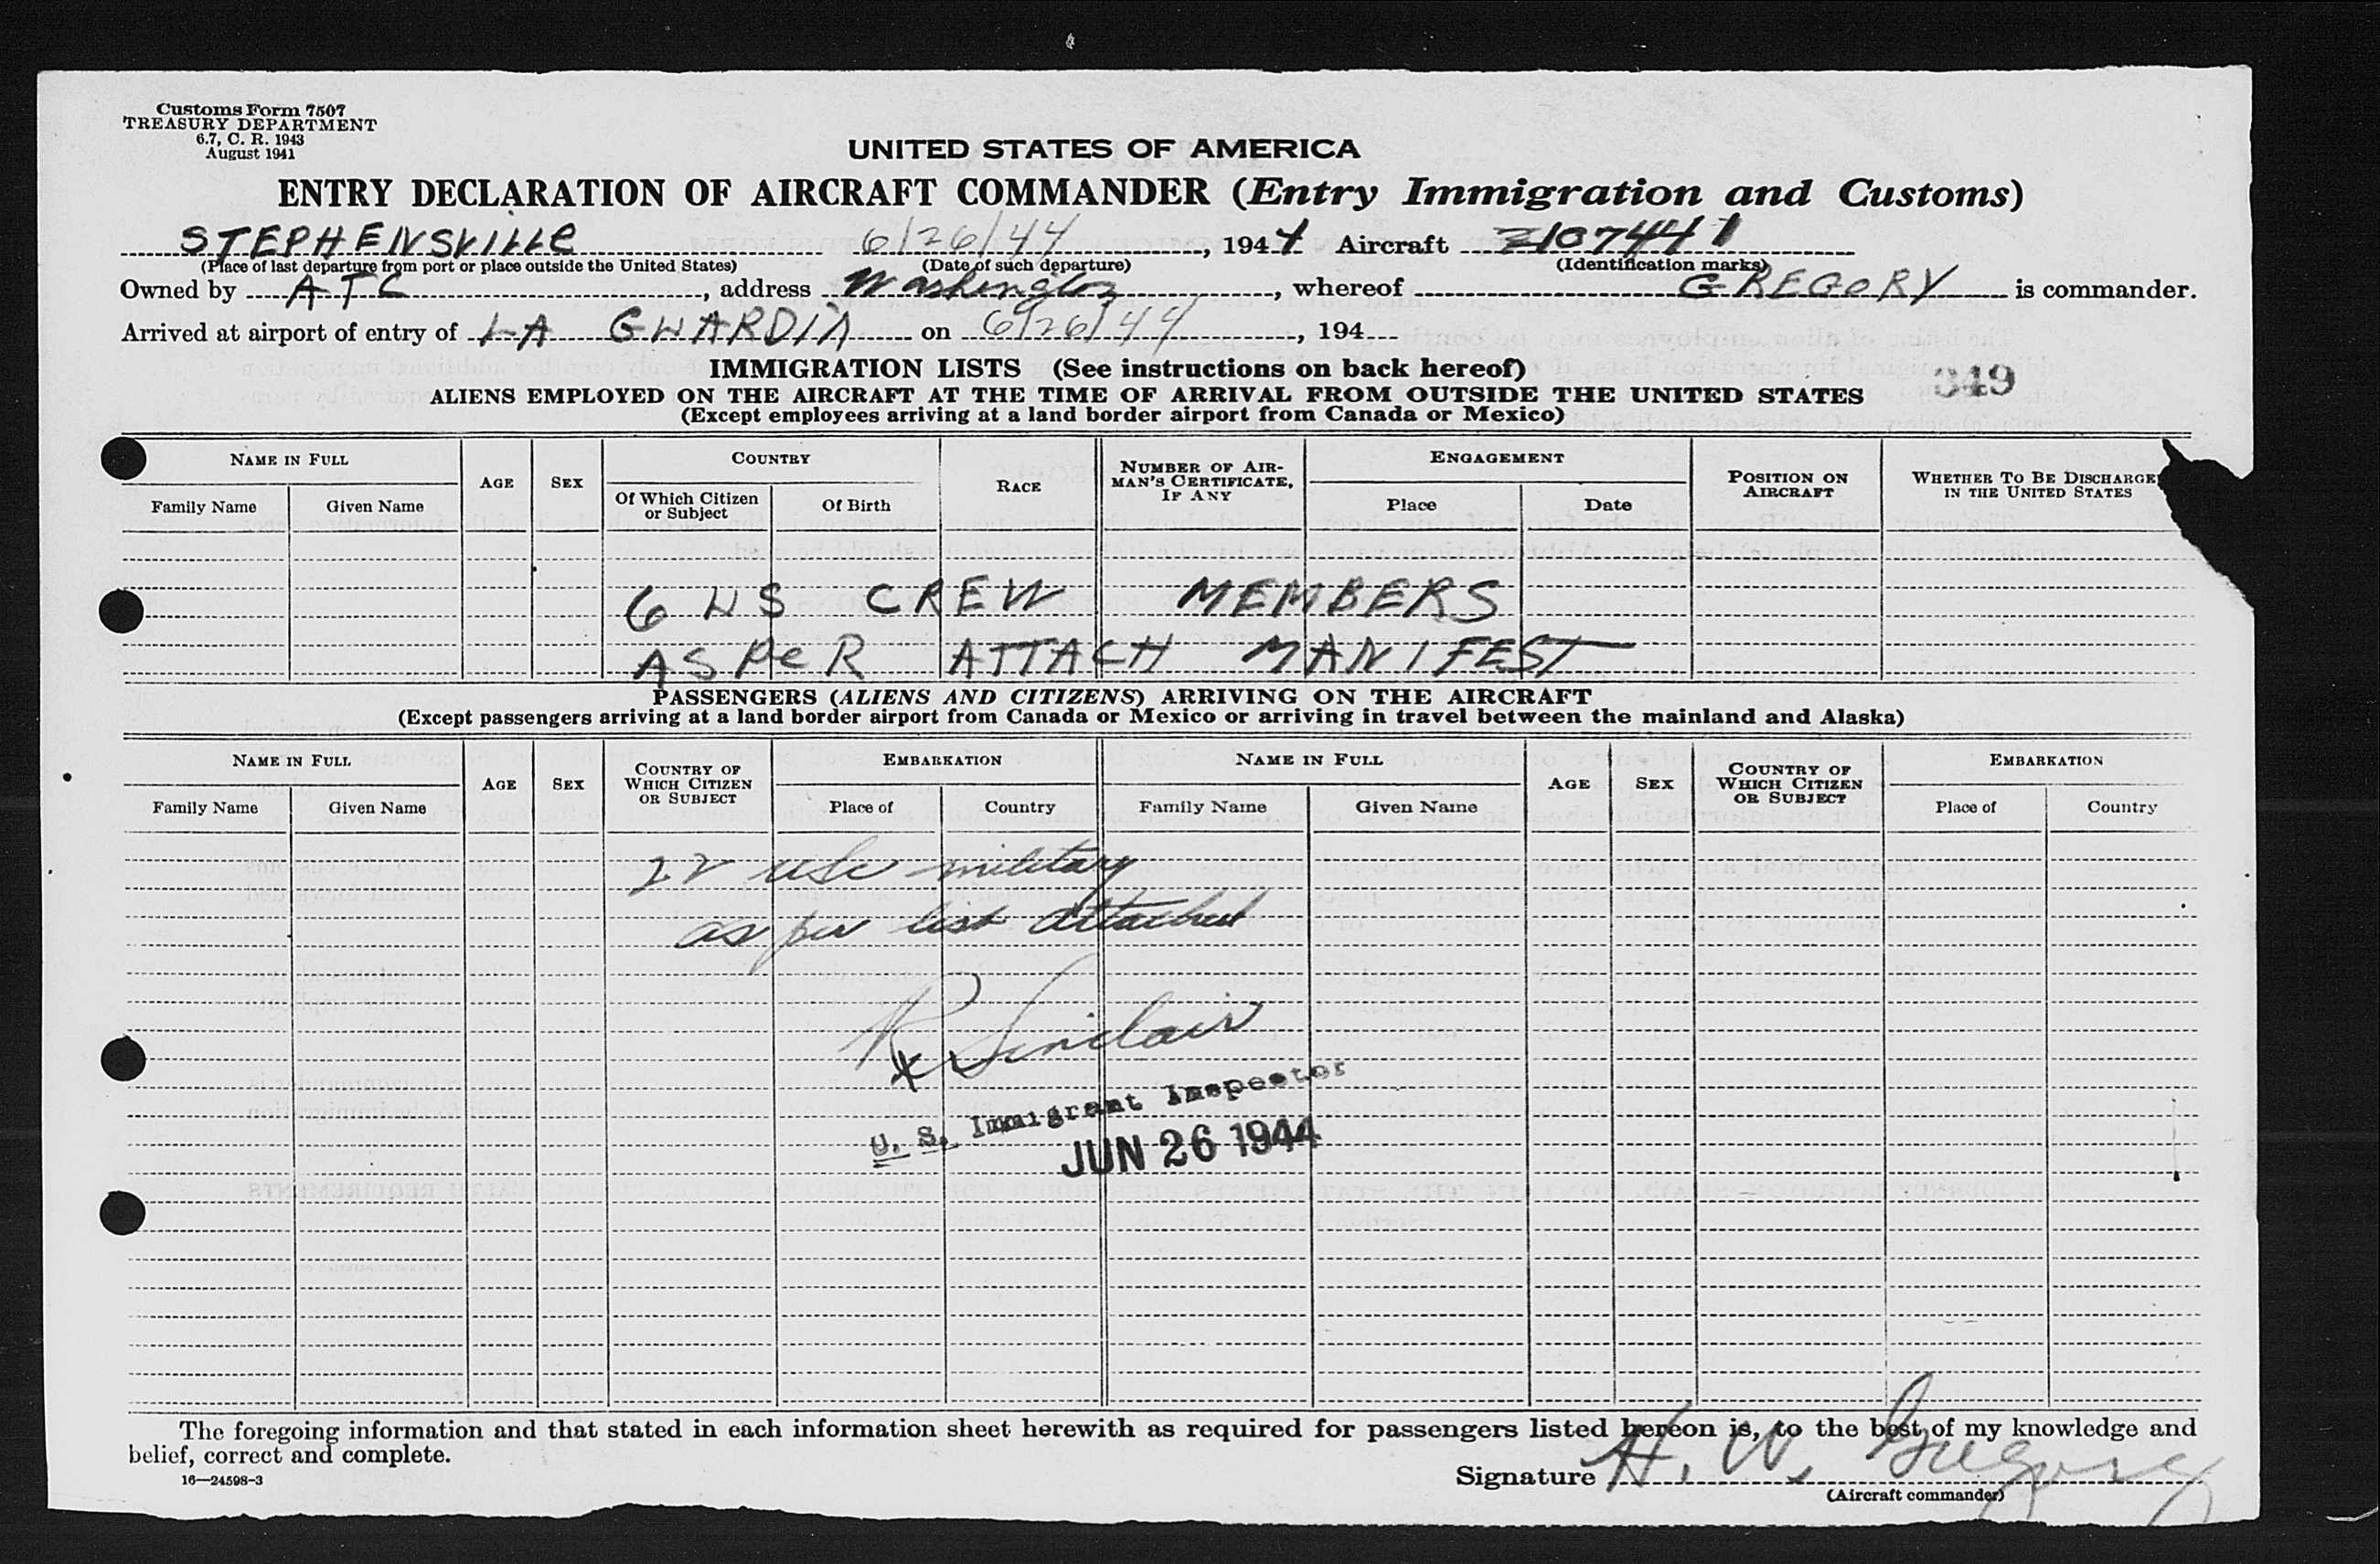 Customs Form 7507
TREASURY DEPARTMENT
6.7, C. R. 1943
August 1941
UNITED STATES OF AMERICA
ENTRY DECLARATION OF AIRCRAFT COMMANDER (Entry Immigration and Customs)
STEPHENSVILLE 6/26/44, 1944 Aircraft 2107441
(Place of last departure from port or place outside the United States) (Date of such departure) (Identification marks)
Owned by ATC, address Washington, whereof GREGORY is commander.
Arrived at airport of entry of LA GUARDIA on 6/26/44, 194
IMMIGRATION LISTS (See instructions on back hereof)
349
ALIENS EMPLOYED ON THE AIRCRAFT AT THE TIME OF ARRIVAL FROM OUTSIDE THE UNITED STATES
(Except employees arriving at a land border airport from Canada or Mexico)
NAME IN FULL AGE SEX COUNTRY RACE NUMBER OF AIRMAN'S CERTIFICATE, IF ANY ENGAGEMENT POSITION ON AIRCRAFT WHETHER TO BE DISCHARGE IN THE UNITED STATES
Family Name Given Name Of Which Citizen or Subject Of Birth Place Date
6 US CREW MEMBERS
AS PER ATTACH MANIFEST
PASSENGERS (ALIENS AND CITIZENS) ARRIVING ON THE AIRCRAFT
(Except passengers arriving at a land border airport from Canada or Mexico or arriving in travel between the mainland and Alaska)
NAME IN FULL AGE SEX COUNTRY OF WHICH CITIZEN OR SUBJECT EMBARKATION NAME IN FULL AGE SEX COUNTRY OF WHICH CITIZEN OR SUBJECT EMBARKATION
Family Name Given Name Place of Country Family Name Given Name Place of Country
22 usc military
as per list attached
R Sinclair
U. S. Immigrant Inspector
JUN 26 1944
The foregoing information and that stated in each information sheet herewith as required for passengers listed hereon is, to the best of my knowledge and
belief, correct and complete.
16—24598-3
Signature H. W. Gregory
(Aircraft commander)